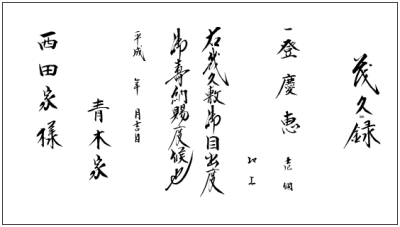 茂久録
一登慶恵 壱個
以上
右幾久敷御目出度
御寿納賜度候也
平成 年 月吉日
青木家
西田家様